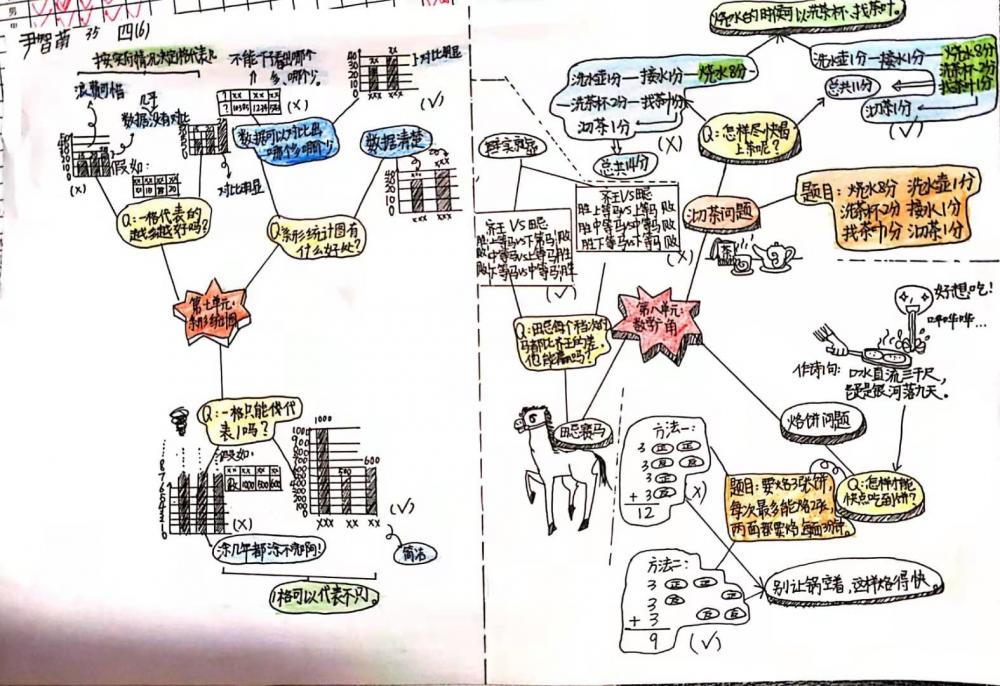 尹智萌 35 四(6)
按实际情况决定1格代表几
浪费可惜
几乎
数据没有对比
假如:
(X)
对比明显
Q:一格代表的
越多越好吗?
不能一下子看出哪个
多,哪个少。
(X)
对比明显
(√)
数据可以对比出
哪个多哪个少
数据清楚
Q:条形统计图有
什么好处?
第七单元:
条形统计图
Q:一格只能代
表1吗?
假如:
(X)
涂几年都涂不完啊!
1000
500
600
xxx xx xx
(√)
简洁
1格可以代表不只1。
烧水的时候可以洗茶杯、找茶叶。
洗水壶1分—接水1分—烧水8分
—洗茶杯2分—找茶叶1分
沏茶1分
(X)
总共14分
洗水壶1分—接水1分
烧水8分
洗茶杯2分
找茶叶1分
总共11分
沏茶1分
(√)
Q:怎样尽快喝
上茶呢?
沏茶问题
题目:烧水8分 洗水壶1分
洗茶杯2分 接水1分
找茶叶1分 沏茶1分
茶
齐王VS田忌
胜上等马vs上等马败
胜中等马vs中等马败
胜下等马vs下等马败
(X)
齐王VS田忌
胜上等马vs下等马败
败中等马vs上等马胜
败下等马vs中等马胜
(√)
Q:田忌每个档次的
马都比齐王的差。
他能赢吗?
第八单元:
数学广角
田忌赛马
好想吃!
哗哗哗…
作诗句:口水直流三千尺,
疑是银河落九天。
烙饼问题
Q:怎样才能
快点吃到饼?
题目:要烙3张饼,
每次最多能烙2张,
两面都要烙,每面3分钟。
方法一:
3 正 正
3 反 反
3 正
+ 3 反
12
(X)
方法二:
3 正 正
3
+ 3 反 反
9
(√)
别让锅空着,这样烙得快。